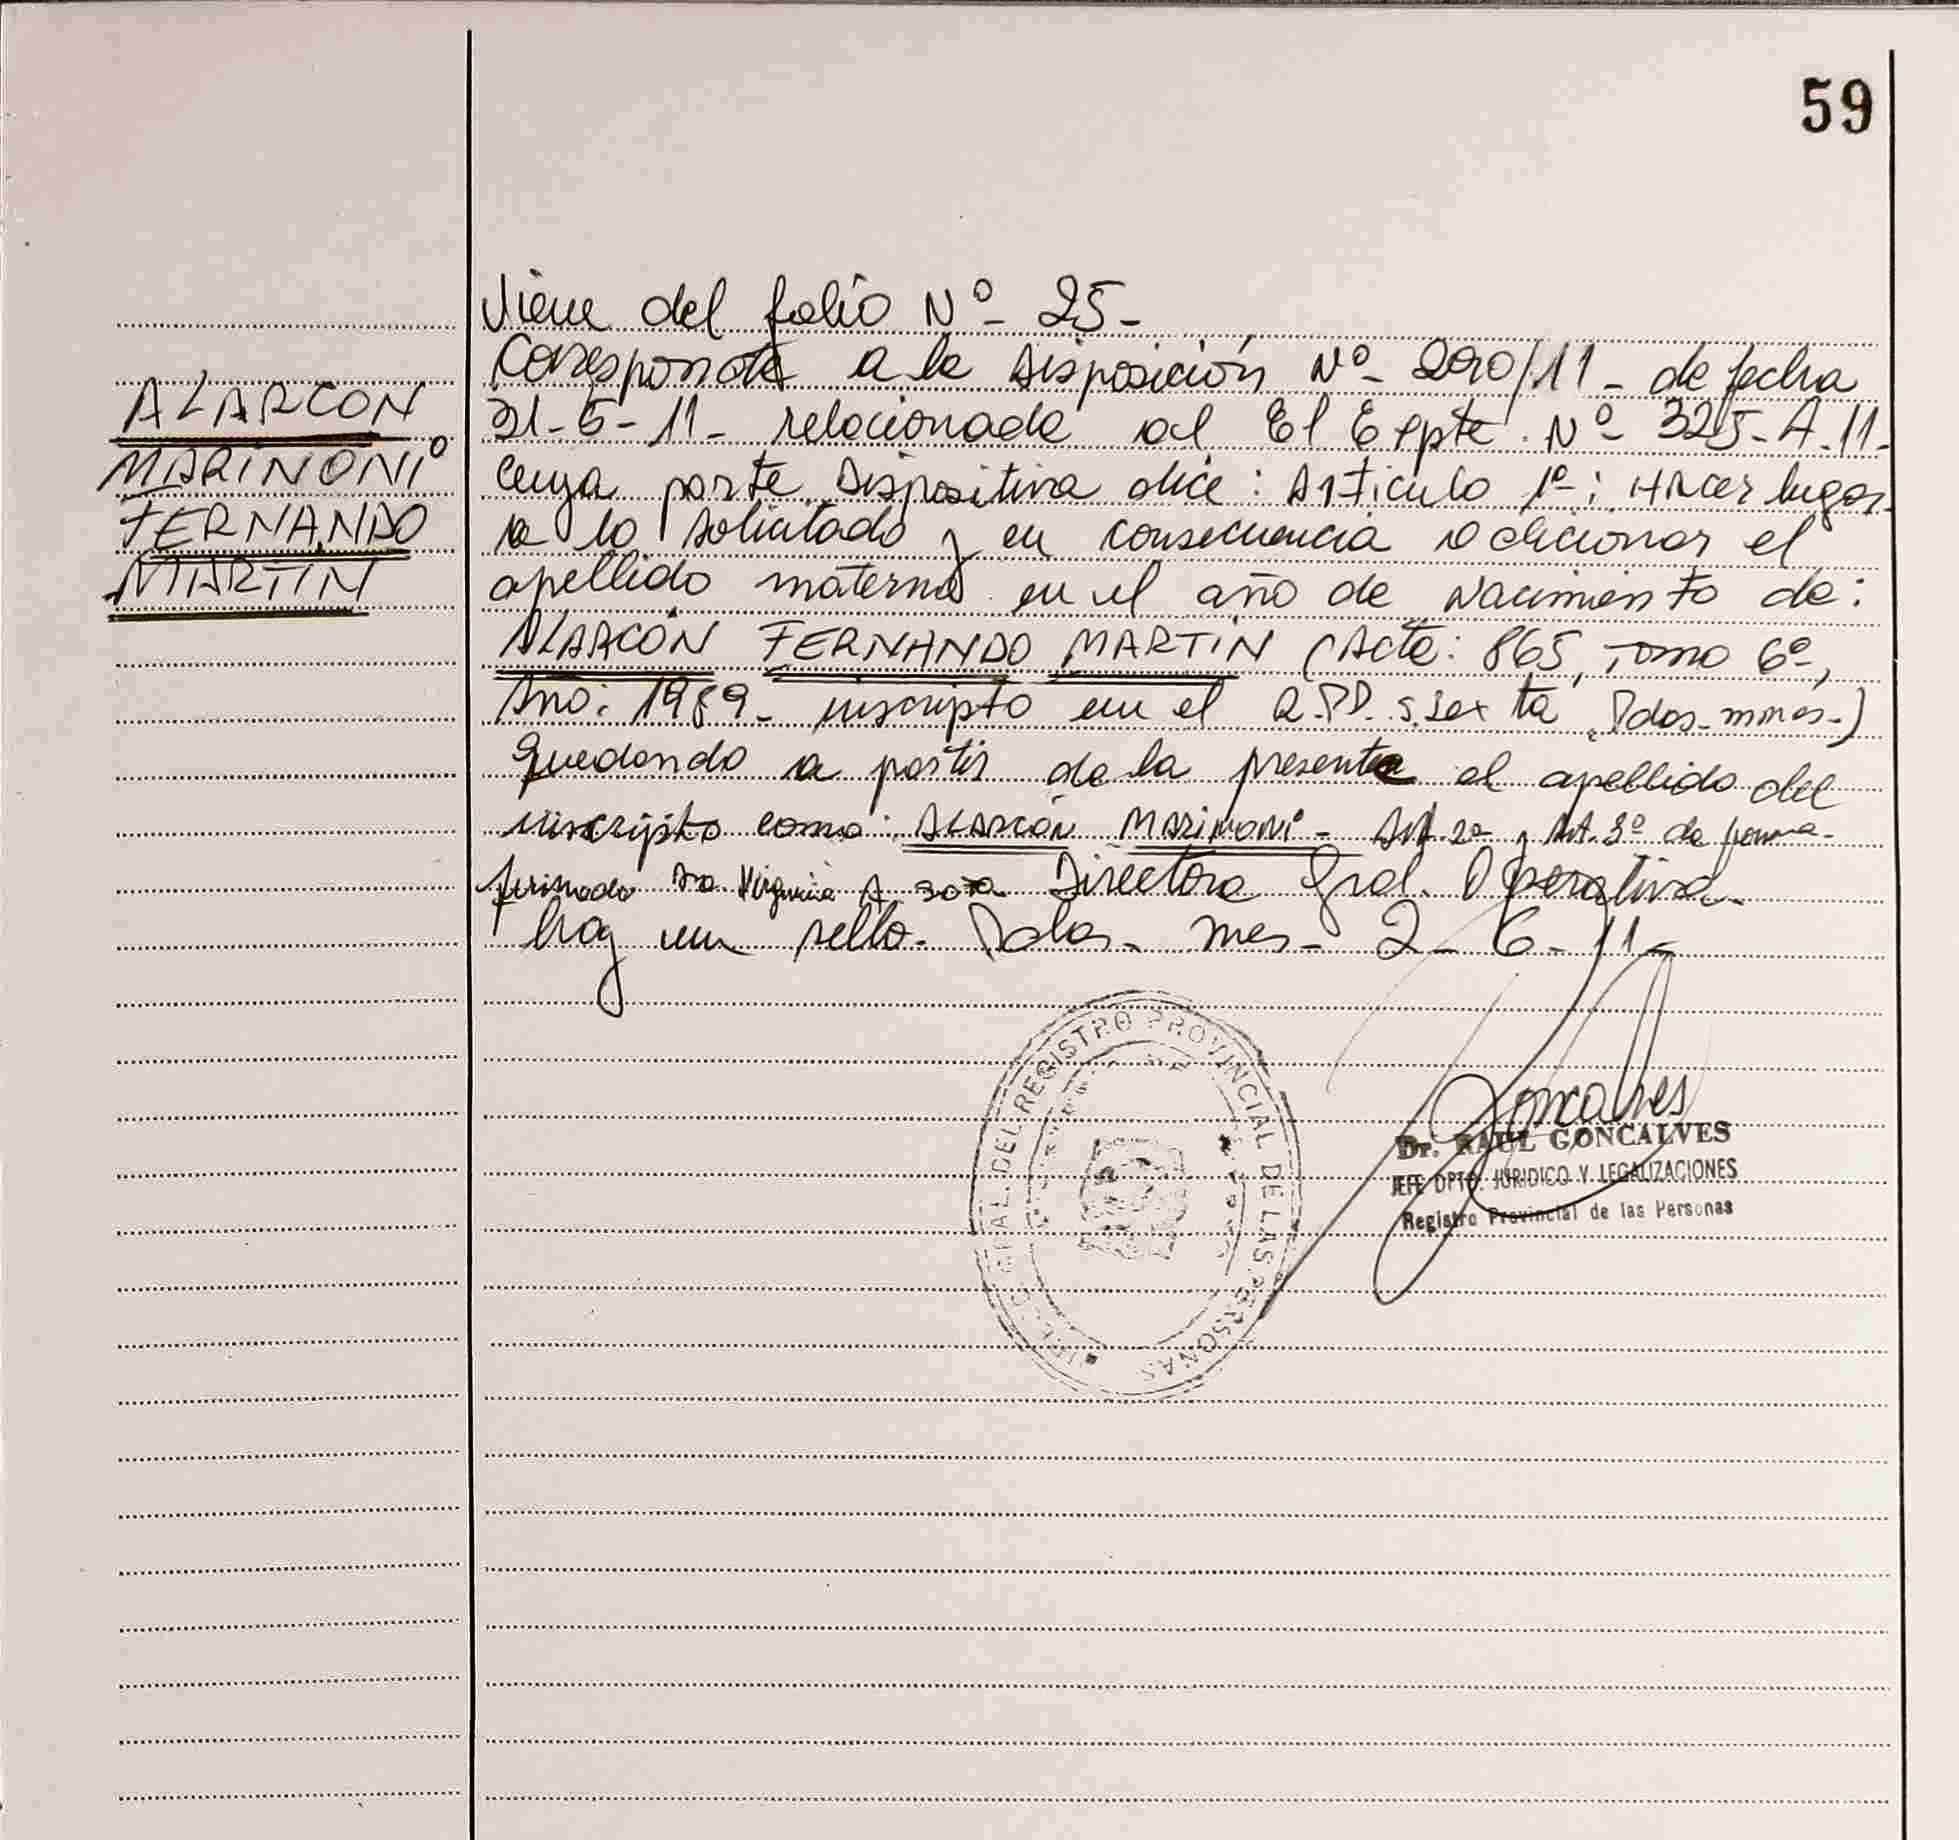 59
Viene del folio Nº- 25-
Corresponde a la Disposición Nº- 2090/11- de fecha
31-5-11- relacionada al El Expte. Nº- 325-A-11-
Cuya parte Dispositiva dice: Artículo 1º: HAcer lugar
a lo solicitado y en consecuencia adicionar el
apellido materno en el año de Nacimiento de:
ALARCÓN FERNANDO MARTÍN (Acta: 865, Tomo 6º,
Año: 1989- inscripto en el R.PP. S. Sexta Pdas-mnes-)
quedando a partir de la presente el apellido del
inscripto como: ALARCÓN MARINONI- Art. 2º y Art. 3º de forma-
firmado Dra Virginia A Sosa Directora Gral. Operativa-
hay un sello- Pdas- mes- 2-6-11-
ALARCON
MARINONI
FERNANDO
MARTIN
GRAL. DEL REGISTRO PROVINCIAL DE LAS PERSONAS
Goncalves
Dr. RAUL GONCALVES
JEFE DPTO. JURIDICO Y LEGALIZACIONES
Registro Provincial de las Personas